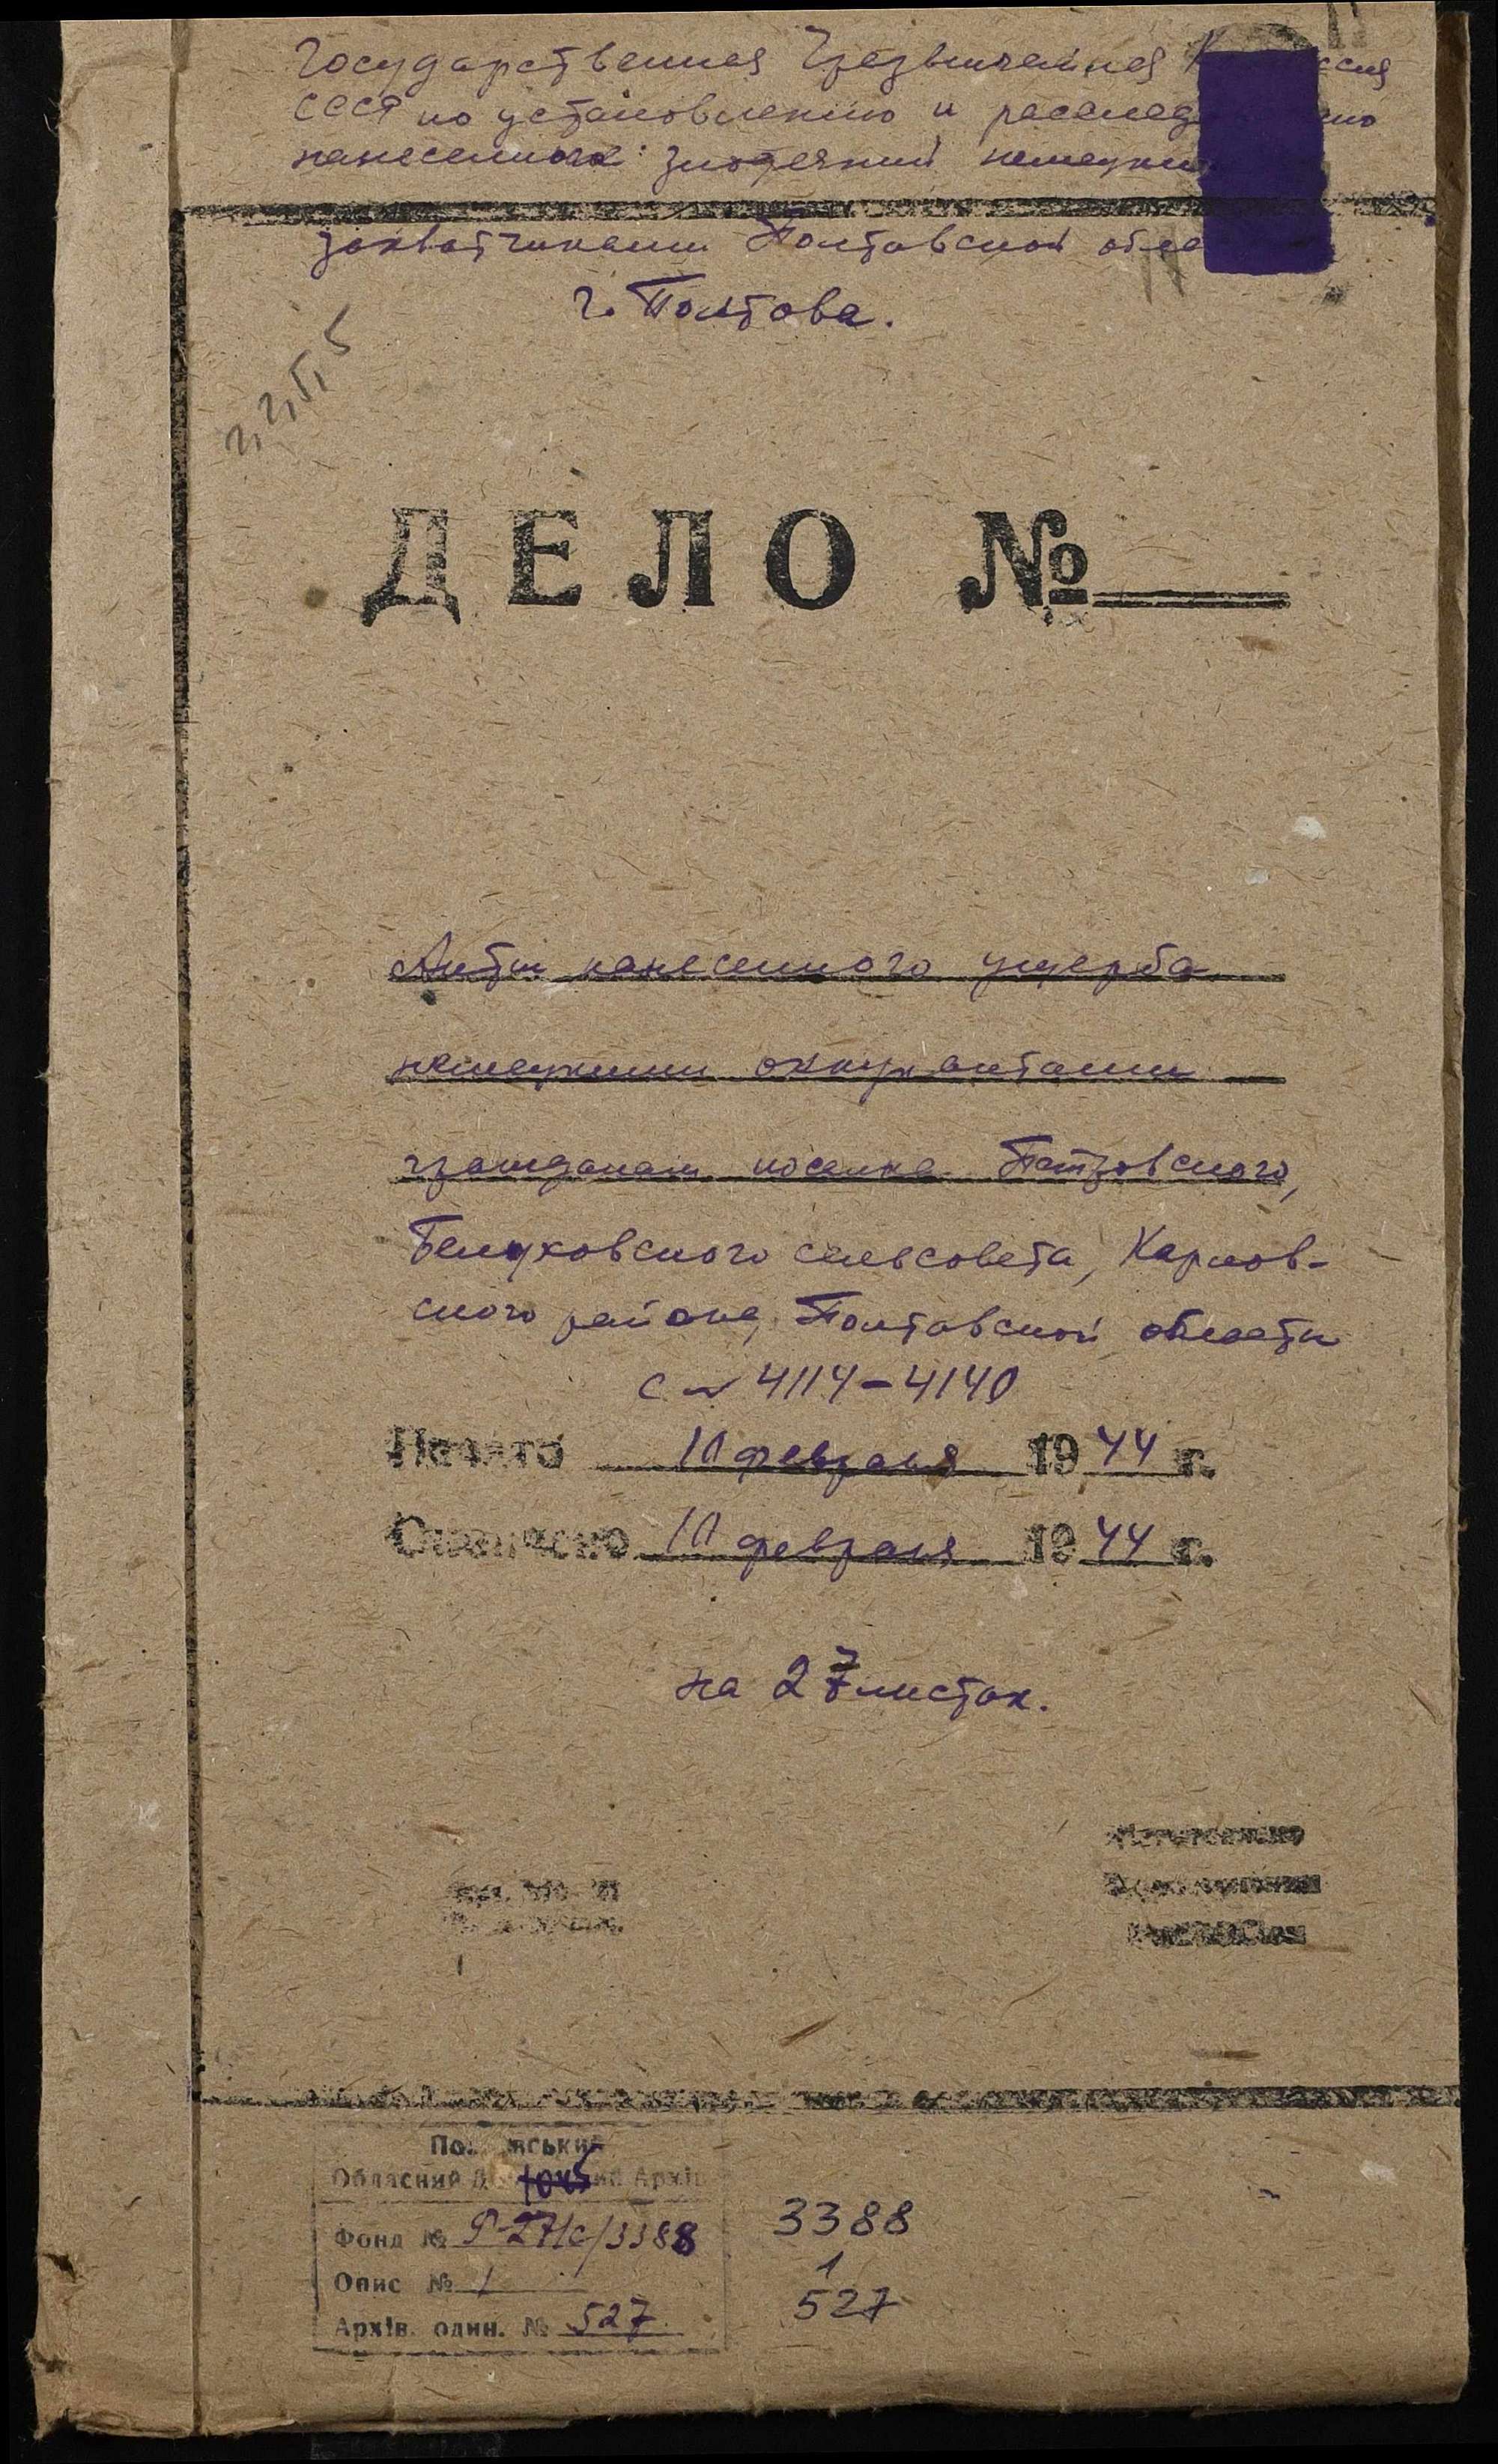 Государственная Чрезвычайная
СССР по установлению и
нанесенных злодеяний
захватчиками Полтавской
г. Полтава.
2,2,5,5
ДЕЛО №
Акты нанесенного ущерба
немецкими оккупантами
гражданам поселка Петровского,
Белуховского сельсовета, Карлов-
ского района, Полтавской области
с № 4114-4140
Начато 10 февраля 1944 г.
Окончено 10 февраля 1944 г.
на 27 листах.
Обласний Архів
Фонд № Р-27/с/3388
Опис № 1
Архів. один. № 527
3388
1
527